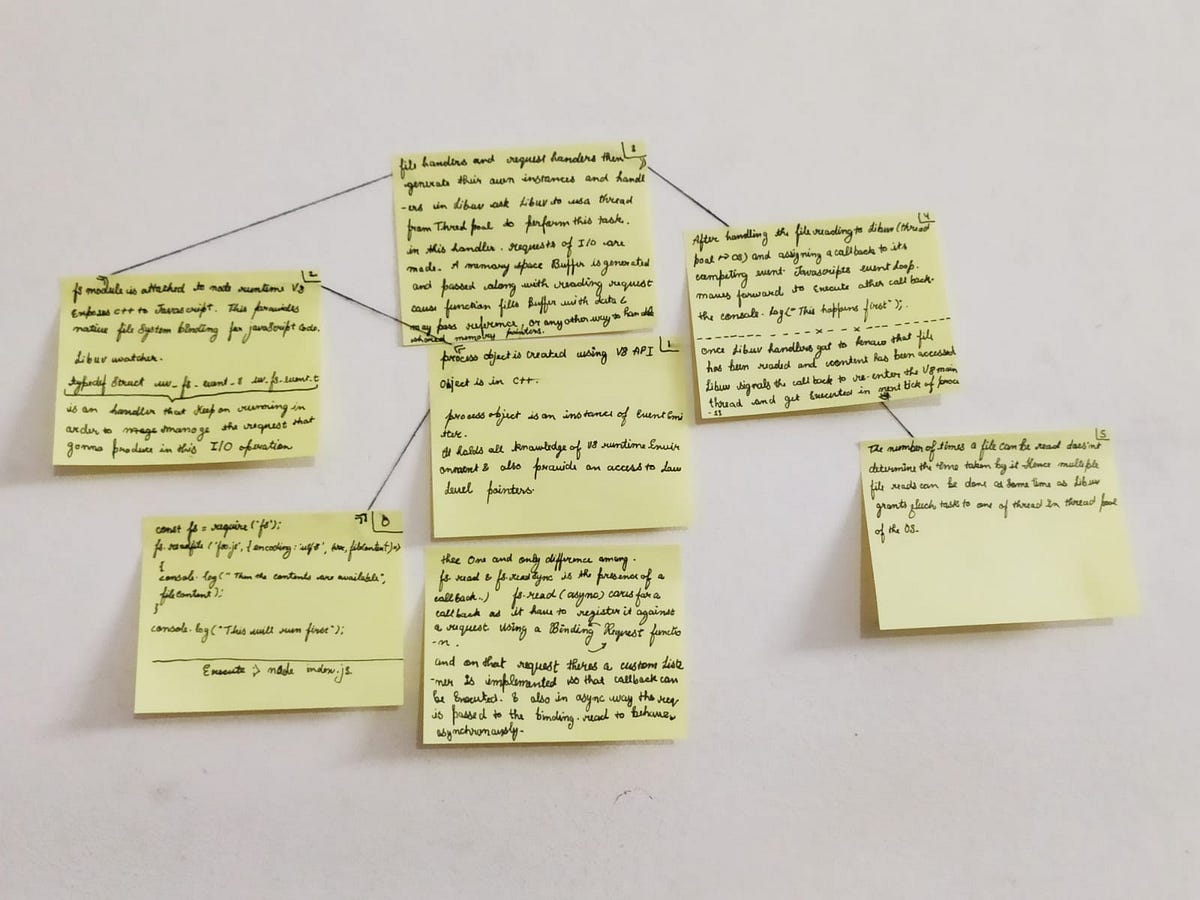 0
const fs = require('fs');
fs.readfile('foo.js', {encoding: 'utf8', err, filecontent)=>
{
console.log("Then the contents are available",
filecontent);
}
console.log("This will run first");
Execute :> node index.js
1
process object is created using V8 API
Object is in C++.
process object is an instance of Event Emi
tter.
It holds all knowledge of V8 runtime Envir
onment & also provide an access to Low
level pointers.
2
fs module is attached to node runtime V8
Exposes C++ to Javascript. This provides
native file System binding for javaScript Code.
Libuv watcher.
typedef Struct uv_fs_event_s uv_fs_event_t
is an handler that Keep on running in
order to manage the request that
gonna produce in this I/O operation
3
file handers and request handers then
generate their own instances and handl
-ers in Libuv ask Libuv to usa thread
from Thred pool to perform this task.
in this handler. requests of I/O are
made. A memory space Buffer is generated
and passed along with reading request
cause function fills Buffer with data &
may pass reference, or any other way to handle
shared memory pointers.
4
After handling the file reading to Libuv (thread
pool ~> OS) and assigning a callback to its
competing event Javascripts event loop.
moves forward to Execute other call back.
the console.log("This happens first");.
once Libuv handlers get to know that file
has been readed and content has been accessed
Libuv signals the call back to re-enter the V8 main
thread and get Executed in next tick of proce
-ss
5
The number of times a file can be read does'nt
determine the time taken by it Hence multiple
file reads can be done at same time as Libuv
grants each task to one of thread in thread pool
of the OS.
thee One and only difference among.
fs.read & fs.readsync is the presence of a
callback..) fs.read (async) cares for a
callback as it have to register it against
a request using a Binding Request functio
-n.
and on that request theres a custom Liste
-ner is implemented so that callback can
be Executed. & also in async way the req
is passed to the binding.read to behave
asynchronously.